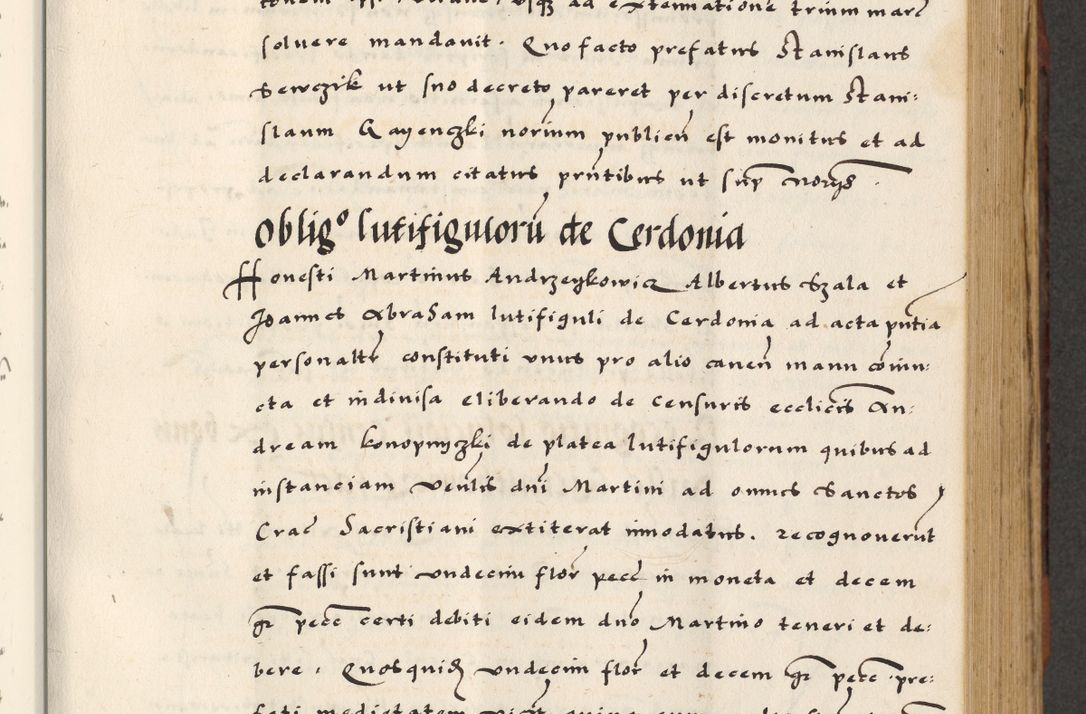 soluere mandavit. Quo facto prefatus Stanislaus
Sewczik ut suo decreto pareret per discretum Stani:
slaum Gayenczki norium publicu est monitus et ad
declarandum citatus pñtibus ut sup
Obligº lutifiguloru de Cerdonia
Honesti Martinus Andrzeykowicz Albertus Szala et
Joannes Abraham lutifiguli de Cerdonia ad acta pñtia
personaltr constituti unus pro alio caven manu coniu:
cta et indivisa eliberando de censuris ecclicis An:
dream konopniczki de platea lutifigulorum quibus ad
instanciam venlis dni Martini ad omnes Sanctos
Crac Sacristiani extiterat innodatus. recognoverut
et fassi sunt undecim flor pecc in moneta et decem
gr pecc certi debiti eidem dno Martino teneri et de:
bere. Quosquid undecim flor et decem gr pecc pre: